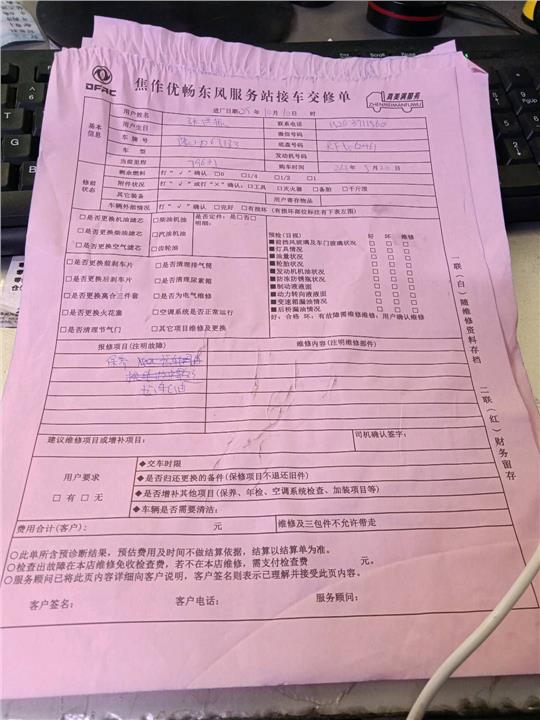 DFAC
焦作优畅东风服务站接车交修单
真美满服务
ZHENMEIMANFUWU
基本信息
用户姓名 进厂日期 25年10月10日 时
用户生日 联系电话
车辆号 微信号码
车型 底盘号码
当前里程 发动机号码
购车时间
修前状态
剩余燃料 打“√”确认 □0 □1/4 □1/2 □1
附件状况 打“√”或打“×”确认:□工具 □灭火器 □备胎 □千斤顶
其它装备 用户寄存物品
车辆外部情况 打“√”确认 □完好 □有损坏(有损坏部位标注有下表左图)
□是否更换机油滤芯 □柴油机油 是否定件:是□否□
明细:
□是否更换柴油滤芯 □汽油机油
□是否更换空气滤芯 □齿轮油
□是否更换前刹车片 □是否清理排气筒
□是否更换后刹车片 □是否清理尿素箱
□是否更换离合三件套 □是否为电气维修
□是否更换火花塞 □空调系统是否正常运行
□是否清理节气门 □其它项目维修及更换
预检(目视) 好 坏 维修
■前挡风玻璃及车门玻璃状况 □ □ □
■灯具情况 □ □ □
■油量状况 □ □ □
■轮胎状况 □ □ □
■发动机机油状况 □ □ □
■防冻防锈瓶状况 □ □ □
■制动液液面 □ □ □
■动力转向液液面 □ □ □
■变速箱漏油情况 □ □ □
■后桥漏油情况 □ □ □
好:合格 坏:有故障需维修维修:用户确认维修
报修项目(注明故障) 维修内容(注明维修部件)
保养
建议维修项目或增补项目: 司机确认签字:
用户要求
□有 □无
◆交车时限
◆是否归还更换的备件(保修项目不退还旧件)
◆是否增补其他项目(保养、年检、空调系统检查、加装项目等)
◆车辆是否需要清洁:
费用合计(客户): 元 维修及三包件不允许带走
○此单所含预诊断结果,预估费用及时间不做结算依据,结算以结算单为准。
○检查出故障在本店维修免收检查费,若不在本店维修,需支付检查费 元。
○服务顾问已将此页内容详细向客户说明,客户签名则表示已理解并接受此页内容。
客户签名: 客户电话: 服务顾问:
一联(白)随维修资料存档
二联(红)财务留存